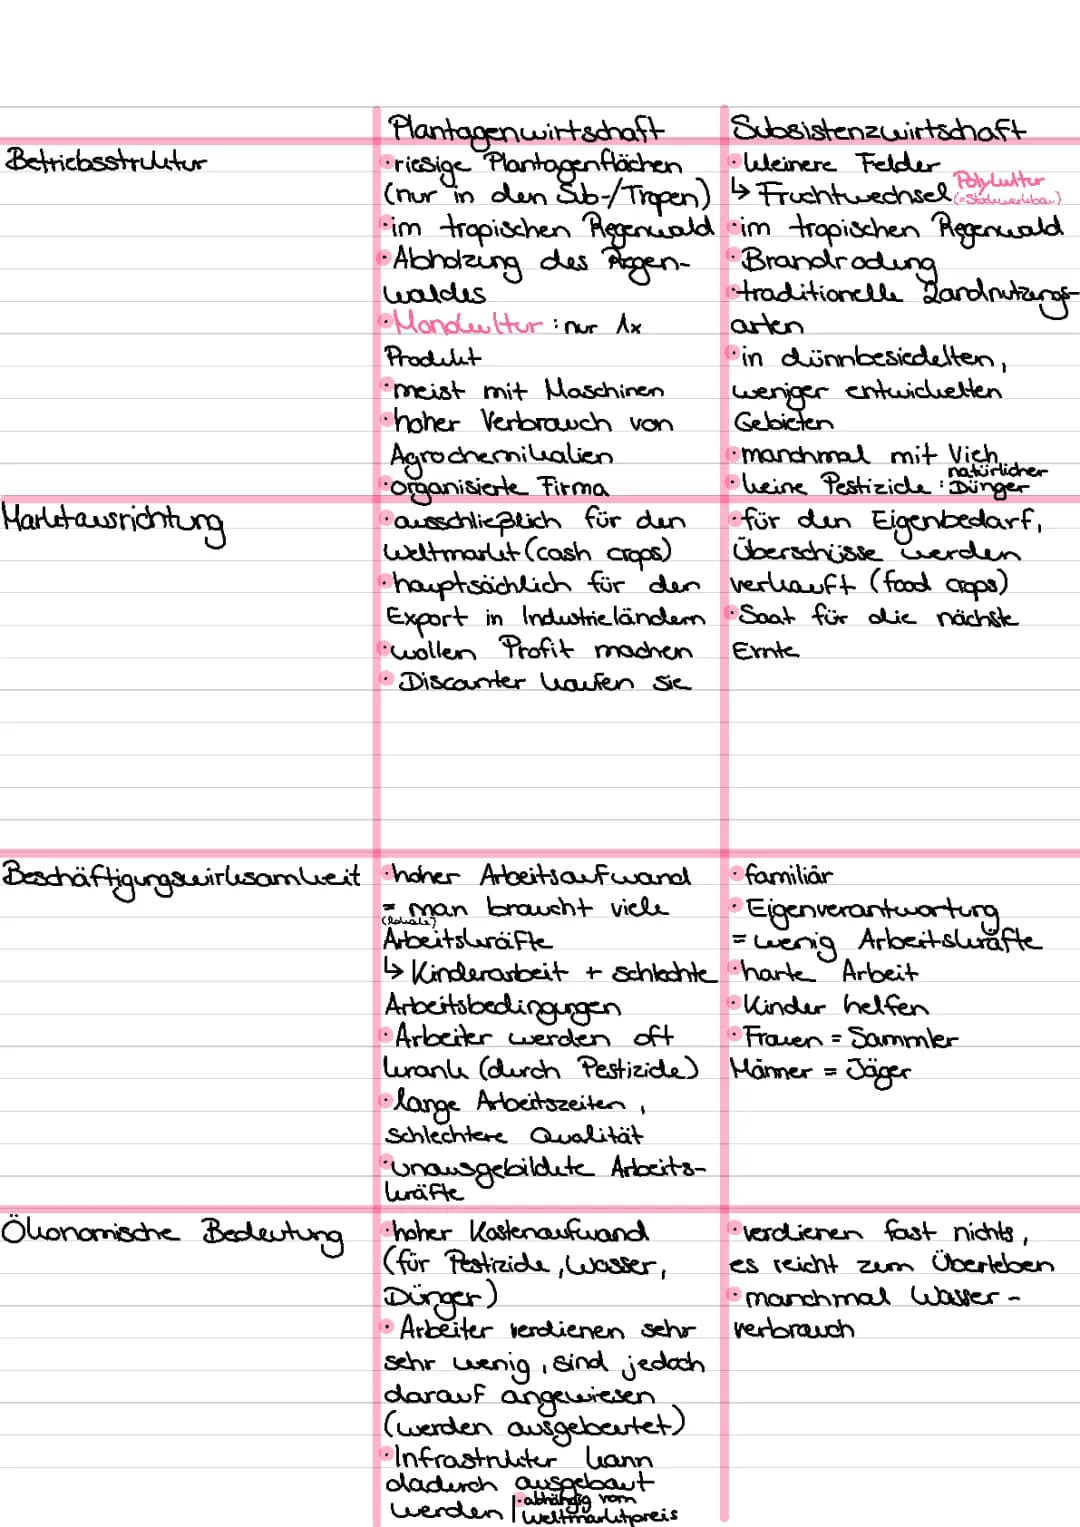 Plantagenwirtschaft
Subsistenzwirtschaft
Betriebsstruktur
• riesige Plantagenflächen
(nur in den Sub-/Tropen)
• im tropischen Regenwald
• Abholzung des Regen-
waldes
• Monokultur: nur 1x
Produkt
• meist mit Maschinen
• hoher Verbrauch von
Agrochemikalien
• organisierte Firma
• kleinere Felder
↳ Fruchtwechsel Polykultur
• im tropischen Regenwald
• Brandrodung
• traditionelle Landnutzungs-
arten
• in dünnbesiedelten,
weniger entwickelten
Gebieten
• manchmal mit Vieh
• keine Pestizide: natürlicher
Dünger
Marktausrichtung
• ausschließlich für den
Weltmarkt (cash crops)
• hauptsächlich für den
Export in Industrieländern
• wollen Profit machen
• Discounter kaufen sie
• für den Eigenbedarf,
Überschüsse werden
verkauft (food crops)
• Saat für die nächste
Ernte
Beschäftigungswirksamkeit
• hoher Arbeitsaufwand
= man braucht viele
(lokale)
Arbeitskräfte
↳ Kinderarbeit + schlechte
Arbeitsbedingungen
• Arbeiter werden oft
krank (durch Pestizide)
• lange Arbeitszeiten,
schlechtere Qualität
• unausgebildete Arbeits-
kräfte
• familiär
• Eigenverantwortung
= wenig Arbeitskräfte
• harte Arbeit
• Kinder helfen
• Frauen = Sammler
Männer = Jäger
Ökonomische Bedeutung
• hoher Kostenaufwand
(für Pestizide, Wasser,
Dünger)
• Arbeiter verdienen sehr
sehr wenig, sind jedoch
darauf angewiesen
(werden ausgebeutet)
• Infrastruktur kann
dadurch ausgebaut
werden
• abhängig vom
Weltmarktpreis
• verdienen fast nichts,
es reicht zum Überleben
• manchmal Wasser-
verbrauch